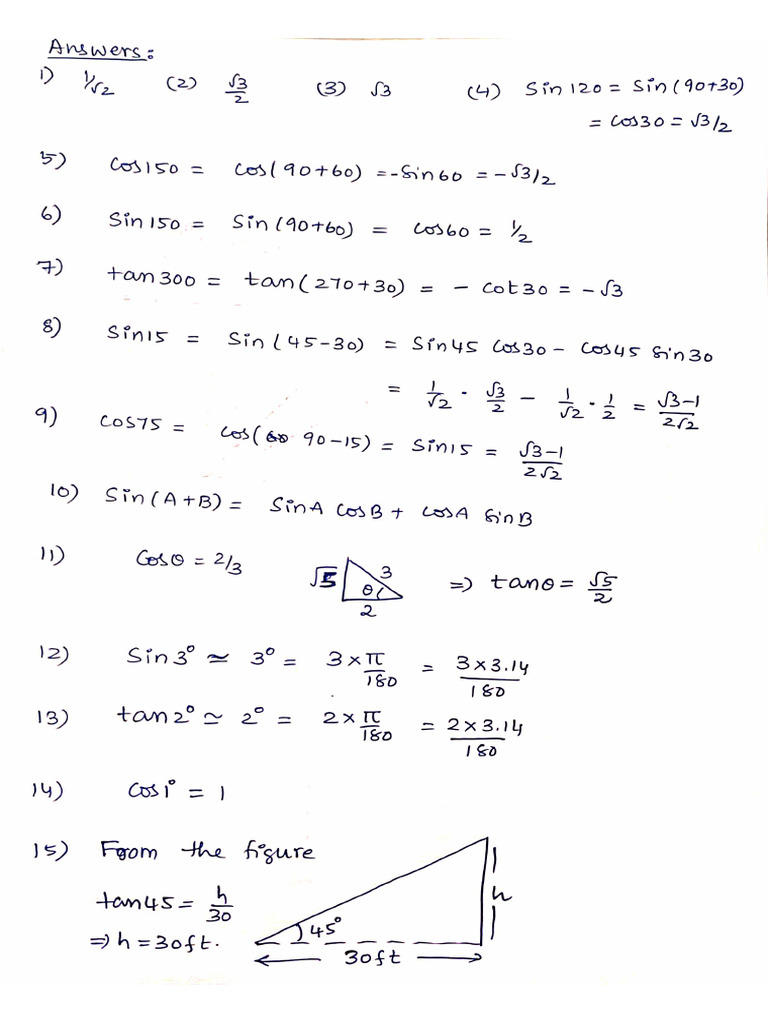 Answers:
1) 1/√2 (2) √3/2 (3) √3 (4) Sin 120 = Sin (90+30)
= Cos30 = √3/2
5) Cos150 = Cos(90+60) = -Sin60 = -√3/2
6) Sin150 = Sin(90+60) = Cos60 = 1/2
7) tan300 = tan(270+30) = - Cot30 = -√3
8) Sin15 = Sin(45-30) = Sin45 Cos30 - Cos45 Sin30
= 1/√2 · √3/2 - 1/√2 · 1/2 = √3-1/2√2
9) Cos75 = Cos(90-15) = Sin15 = √3-1/2√2
10) Sin(A+B) = SinA CosB + CosA SinB
11) Cosθ = 2/3 √5 3 θ 2 ⇒ tanθ = √5/2
12) Sin3° ≃ 3° = 3×π/180 = 3×3.14/180
13) tan2° ≃ 2° = 2×π/180 = 2×3.14/180
14) Cos1° = 1
15) From the figure
tan45 = h/30
⇒ h = 30ft.
45°
h
30ft